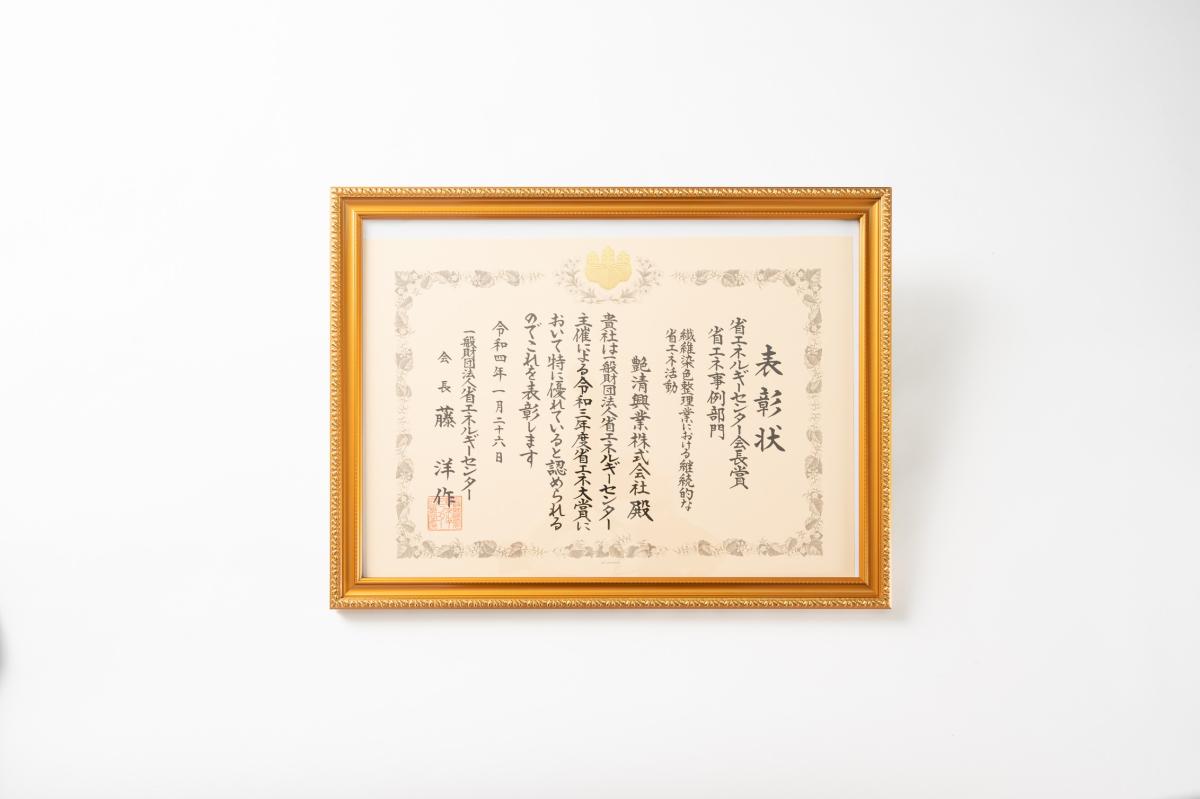 表彰状
省エネルギーセンター会長賞
省エネ事例部門
繊維染色整理業における継続的な
省エネ活動
艶清興業株式会社 殿
貴社は一般財団法人省エネルギーセンター
主催による令和三年度省エネ大賞に
おいて特に優れていると認められる
のでこれを表彰します
令和四年一月二十六日
一般財団法人省エネルギーセンター
会長 藤 洋作